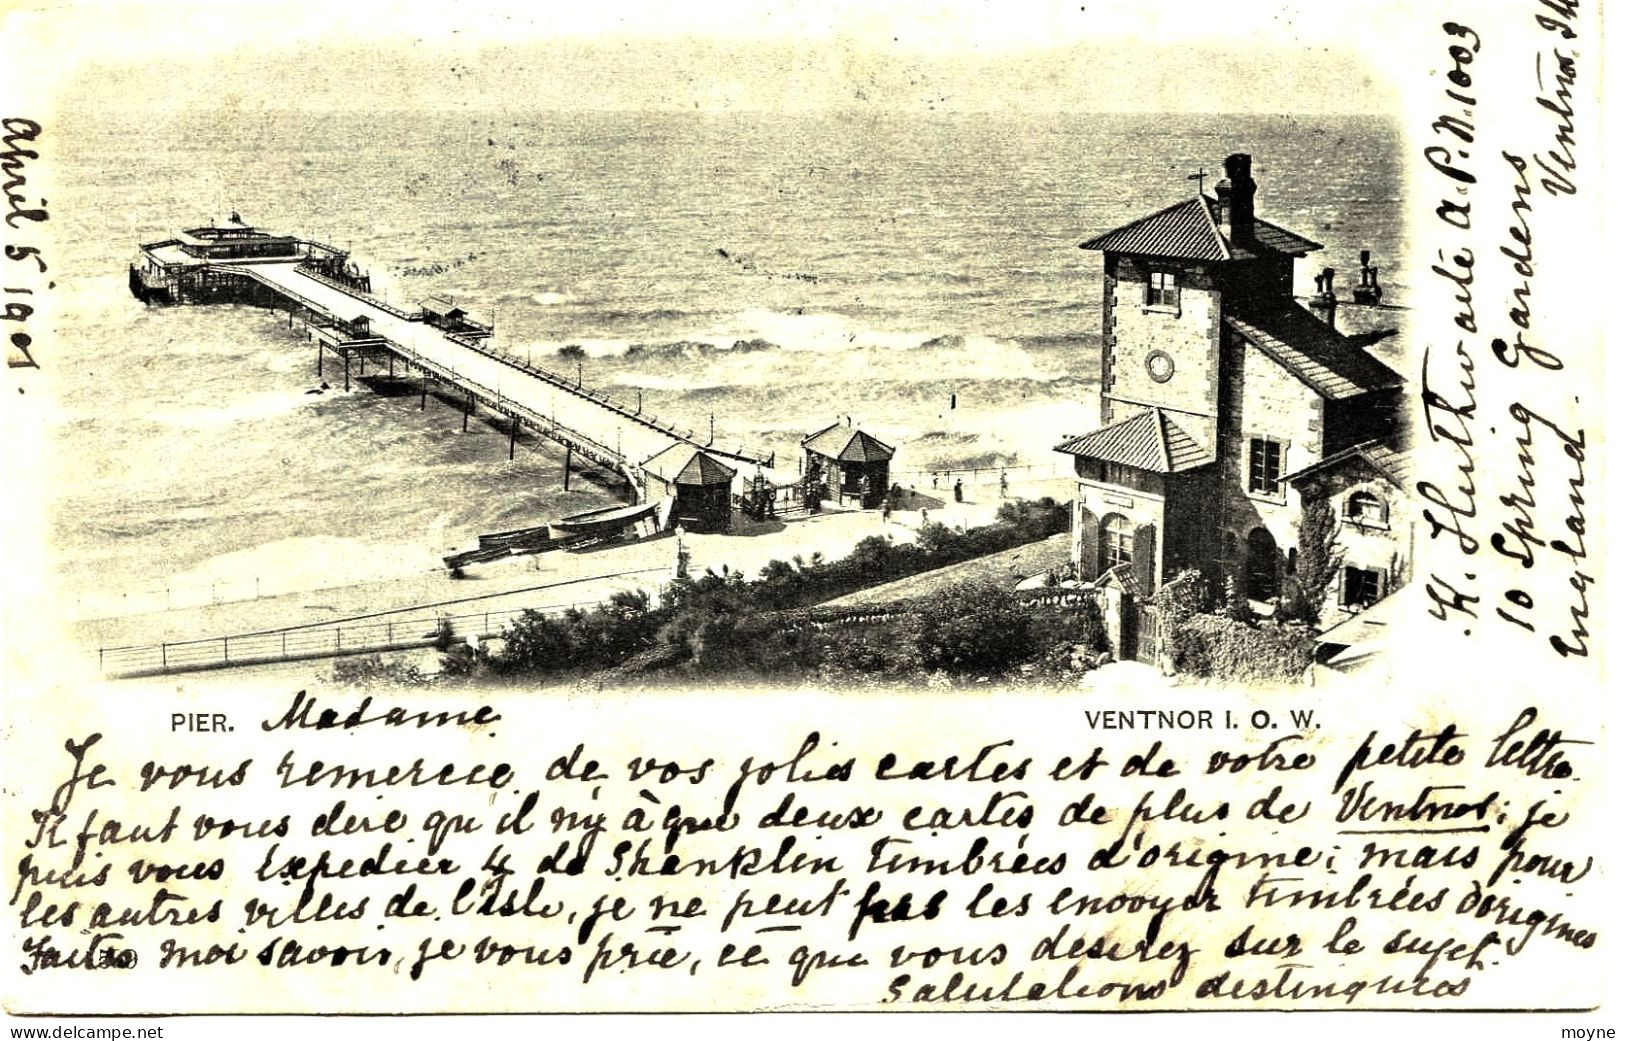 April 5 1901.
K. Huthwaite A.P.N. 1003
10 Spring Gardens
Ventnor
England.
PIER.
Madame
VENTNOR I. O. W.
Je vous remercie de vos jolies cartes et de votre petite lettre.
Il faut vous dire qu'il n'y à que deux cartes de plus de Ventnor; je
puis vous expedier 4 de Shanklin timbrées d'origine; mais pour
les autres villes de l'isle, je ne peut pas les envoyer timbrées d'origines
Faites moi savoir, je vous prie, ce que vous desirez sur le sujet.
Salutations distingués
www.delcampe.net
moyne